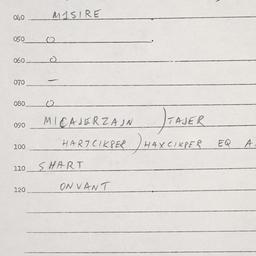 040 MISIRE
050 O
060 O
070 —
080 O
090 MICAJERZAJN )TAJER
100 HARTCIKPER )HAXCIKPER EQ A
110 SHART
120 ONVANT